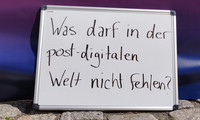 Was darf in der
post-digitalen
Welt nicht fehlen?